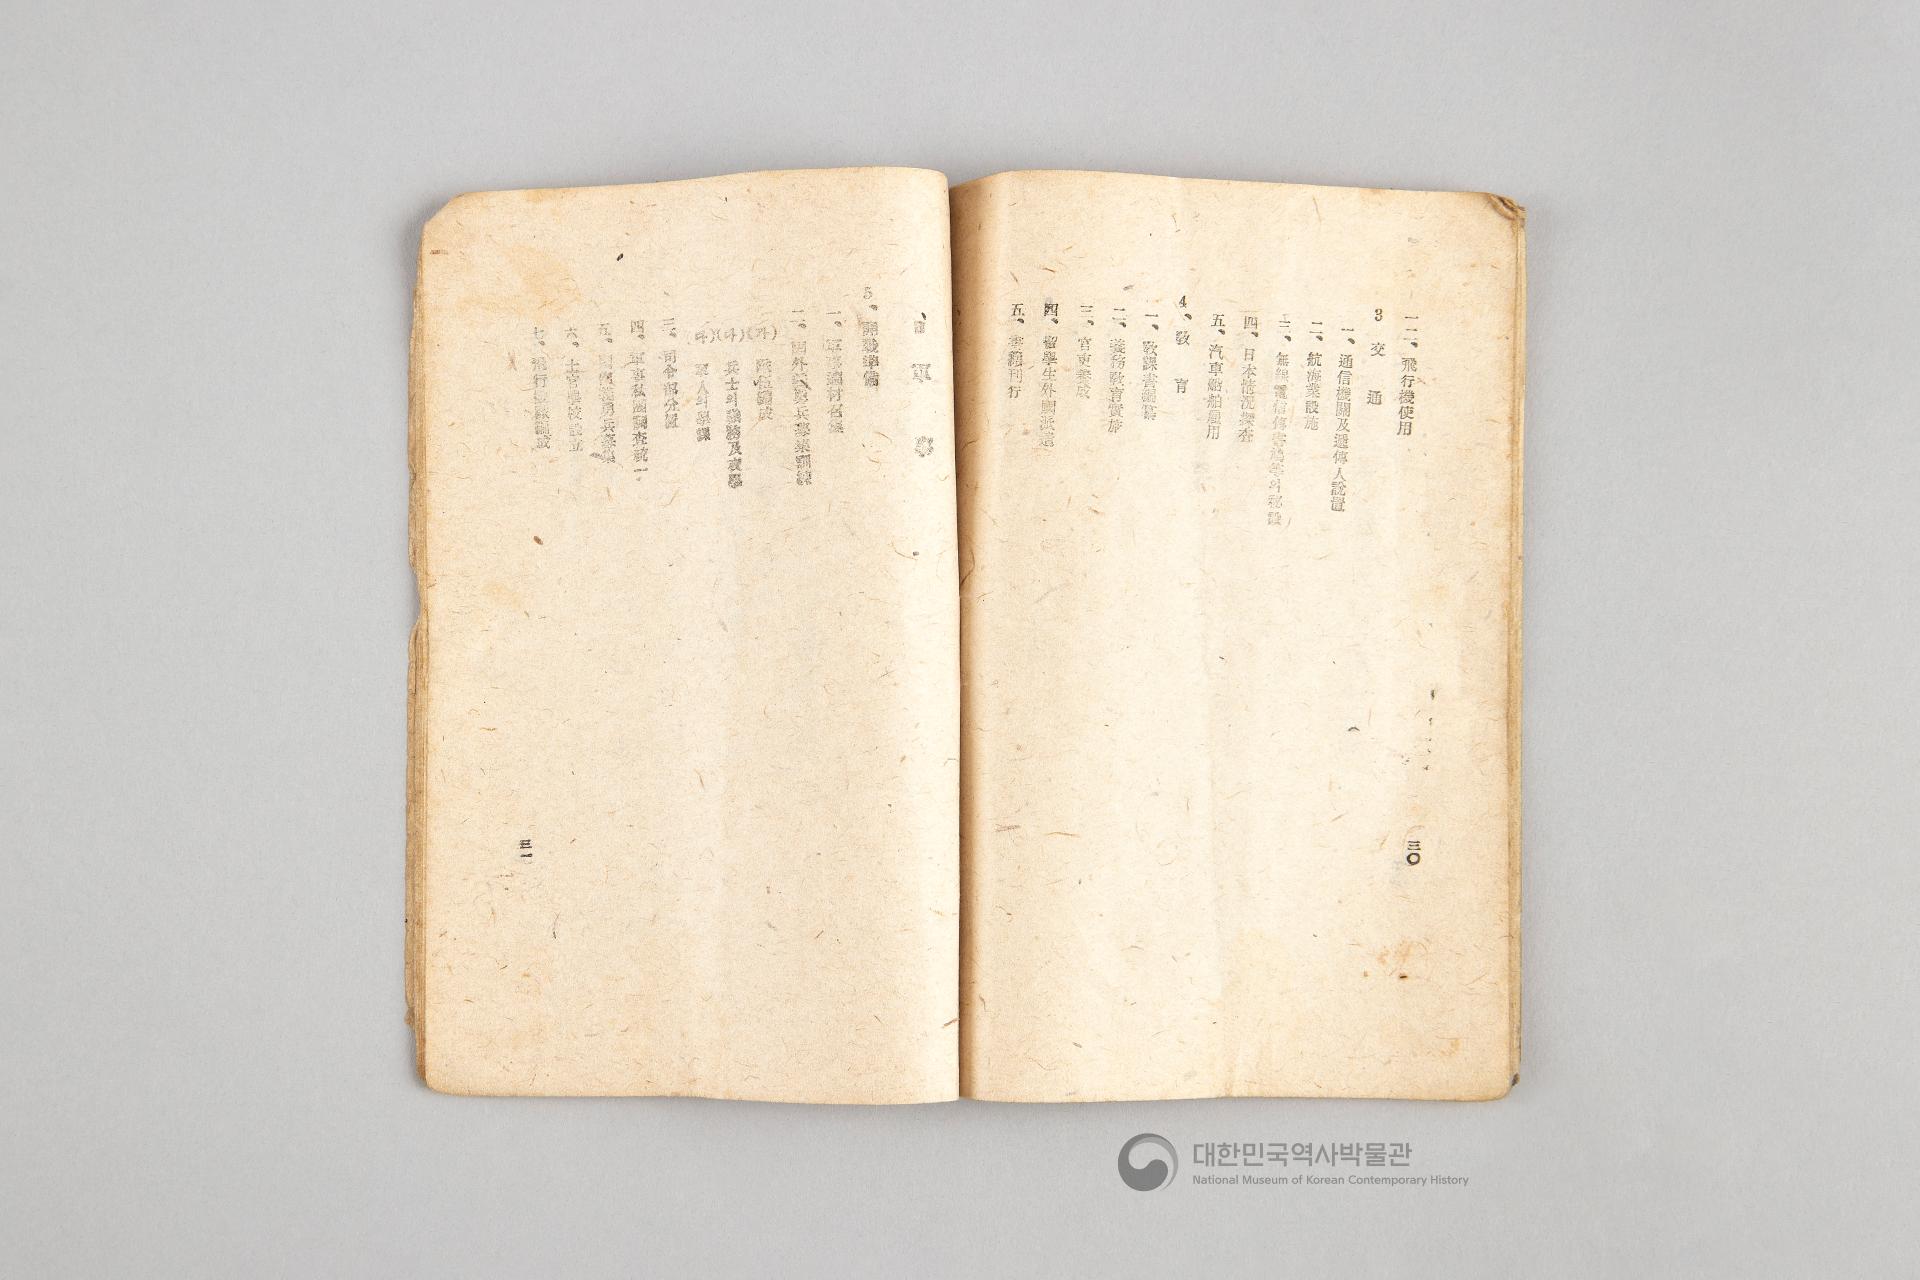 一二、飛行機使用
3 交通
一、通信機關及遞傳人設置
二、航海業設施
三、無線電信傳書鳩等의 秘設
四、日本情況探査
五、汽車船舶雇用
4、敎育
一、敎課書編纂
二、義務敎育實施
三、官吏養成
四、留學生外國派遣
五、書籍刊行
三〇
軍事
5、開戰準備
一、軍事適材召集
二、國外義勇兵募集訓練
(가) 隊伍編成
(나) 兵士의 議務及
(다) 軍人의 學課
三、司令部分置
四、軍事私團調査統一
五、義勇兵募集
六、士官學校設立
七、飛行機隊編成
三一
대한민국역사박물관
National Museum of Korean Contemporary History